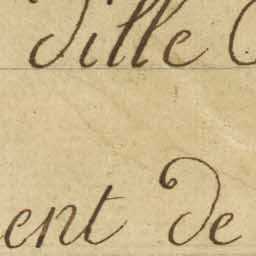 Ville
ent de